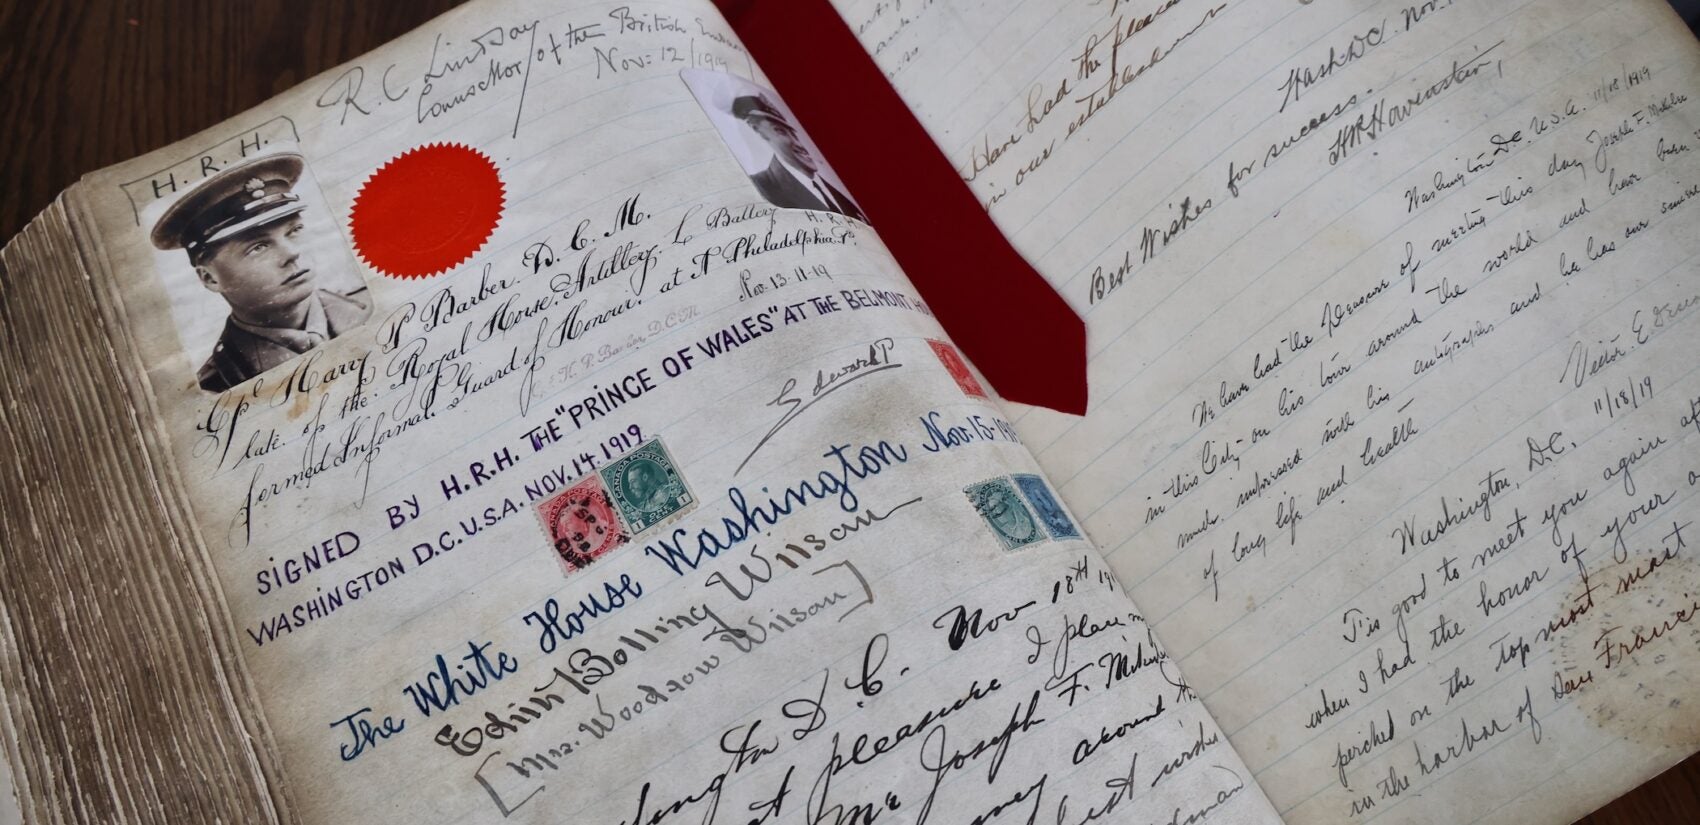 R. C. Lindsay
Counsellor of the British
Nov: 12/1919
H. R. H.
H. R. H.
Cpl Harry P Barber. D. C. M.
late. of the. Royal Horse. Artillery. L Battery
formed Informal Guard of Honour. at Philadelphia. Pa
Nov. 13-11-19
H. P. Barber, D.C.M.
SIGNED BY H.R.H. THE "PRINCE OF WALES" AT THE BELMONT
WASHINGTON D.C. U.S.A. NOV. 14. 1919.
Edward P
CANADA POSTAGE
The White House Washington Nov. 15-19
Edith Bolling Wilson
[Mrs. Woodrow Wilson]
D. C. Nov 18th 19
pleasure I
Mr Joseph F.
around
best wishes
Have had the pleasure
in our establishment
Wash DC. Nov.
Best Wishes for success.
Washington DC U.S.A. 11/18/1919
We have had the pleasure of meeting this day Joseph F.
in this City on his tour around the world and have been
much impressed with his autographs and he has our
of long life and health
Victor E
11/18/19
Washington, D.C.
Tis good to meet you again
when I had the honor of
perched on the top most mast
in the harbor of San